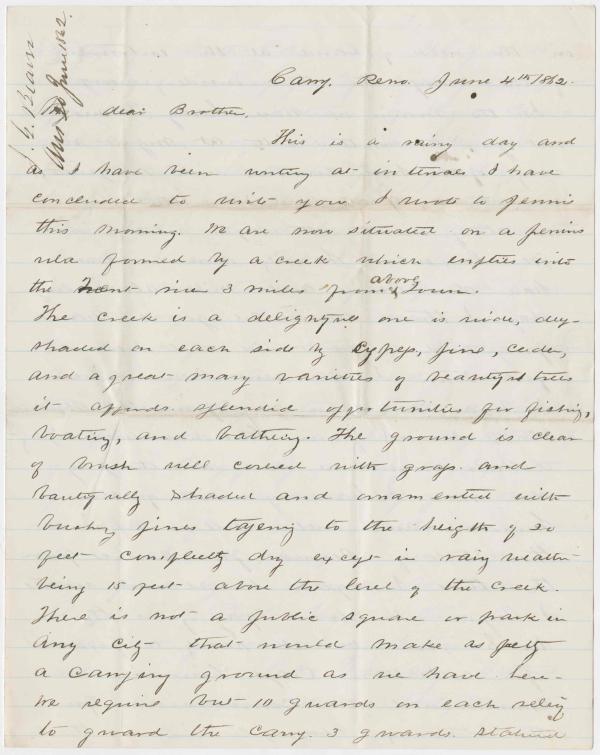 J. G. Bearss
Ans 20 June 1862.
Camp Reno. June 4th 1862.
My dear Brother.
This is a rainy day and
as I have been writing at intervals I have
concluded to write you I wrote to Jennie
this morning. We are now situated on a penins
ula formed by a creek which empties into
the Trent river 3 miles from above Town.
The creek is a delightful one is wide, deep
shaded on each side by cypress, pine, ceder,
and a great many varieties of beautiful trees
it affords splendid opportunities for fishing,
boating, and bathing. The ground is clear
of brush well covered with grass and
beautifully shaded and ornamented with
bushy pines to the heighth of 30
feet completly dry except in rainy weather
being 15 feet above the level of the creek.
There is not a public square or park in
any city that would make as petty
a camping ground as we have here-
We require but 10 guards on each relief
to guard the camp. 3 guards stationed